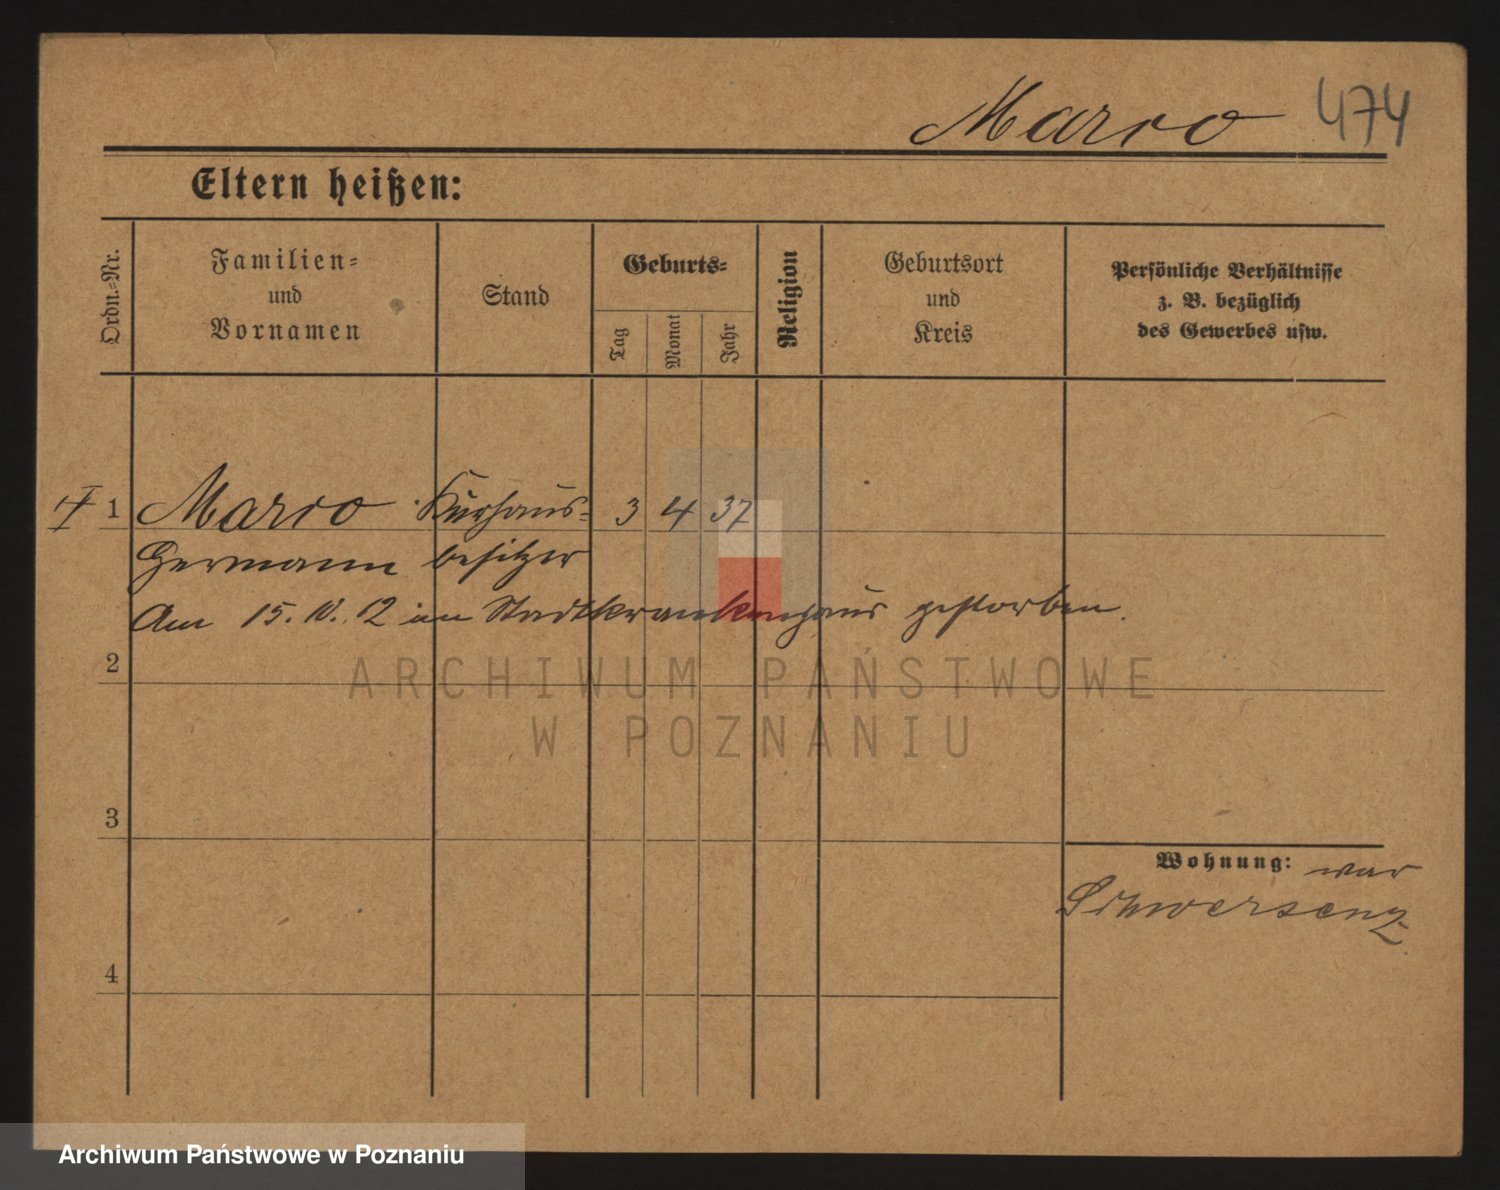 Marco 474
Eltern heißen:
Ordn.-Nr.
Familien-
und
Vornamen
Stand
Geburts-
Tag
Monat
Jahr
Religion
Geburtsort
und
Kreis
Persönliche Verhältnisse
z. B. bezüglich
des Gewerbes usw.
1 Marco Kurhaus- 3 4 37
Hermann besitzer
Am 15. 10. 12 im Stadtkrankenhaus gestorben.
2
ARCHIWUM PAŃSTWOWE
W POZNANIU
3
Wohnung: war
Schwersenz
4
Archiwum Państwowe w Poznaniu